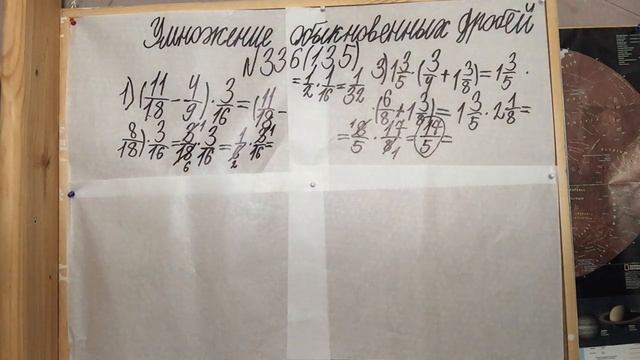 Умножение обыкновенных дробей
№336(1,3,5)
1) (11/18 - 4/9) · 3/16 = (11/18 -
8/18) · 3/16 = 3/18 · 3/16 = 1/2 · 1/16 =
= 1/2 · 1/16 = 1/32
3) 1 3/5 · (3/4 + 1 3/8) = 1 3/5 ·
· (6/8 + 1 3/8) = 1 3/5 · 2 1/8 =
= 8/5 · 17/8 = 17/5 =